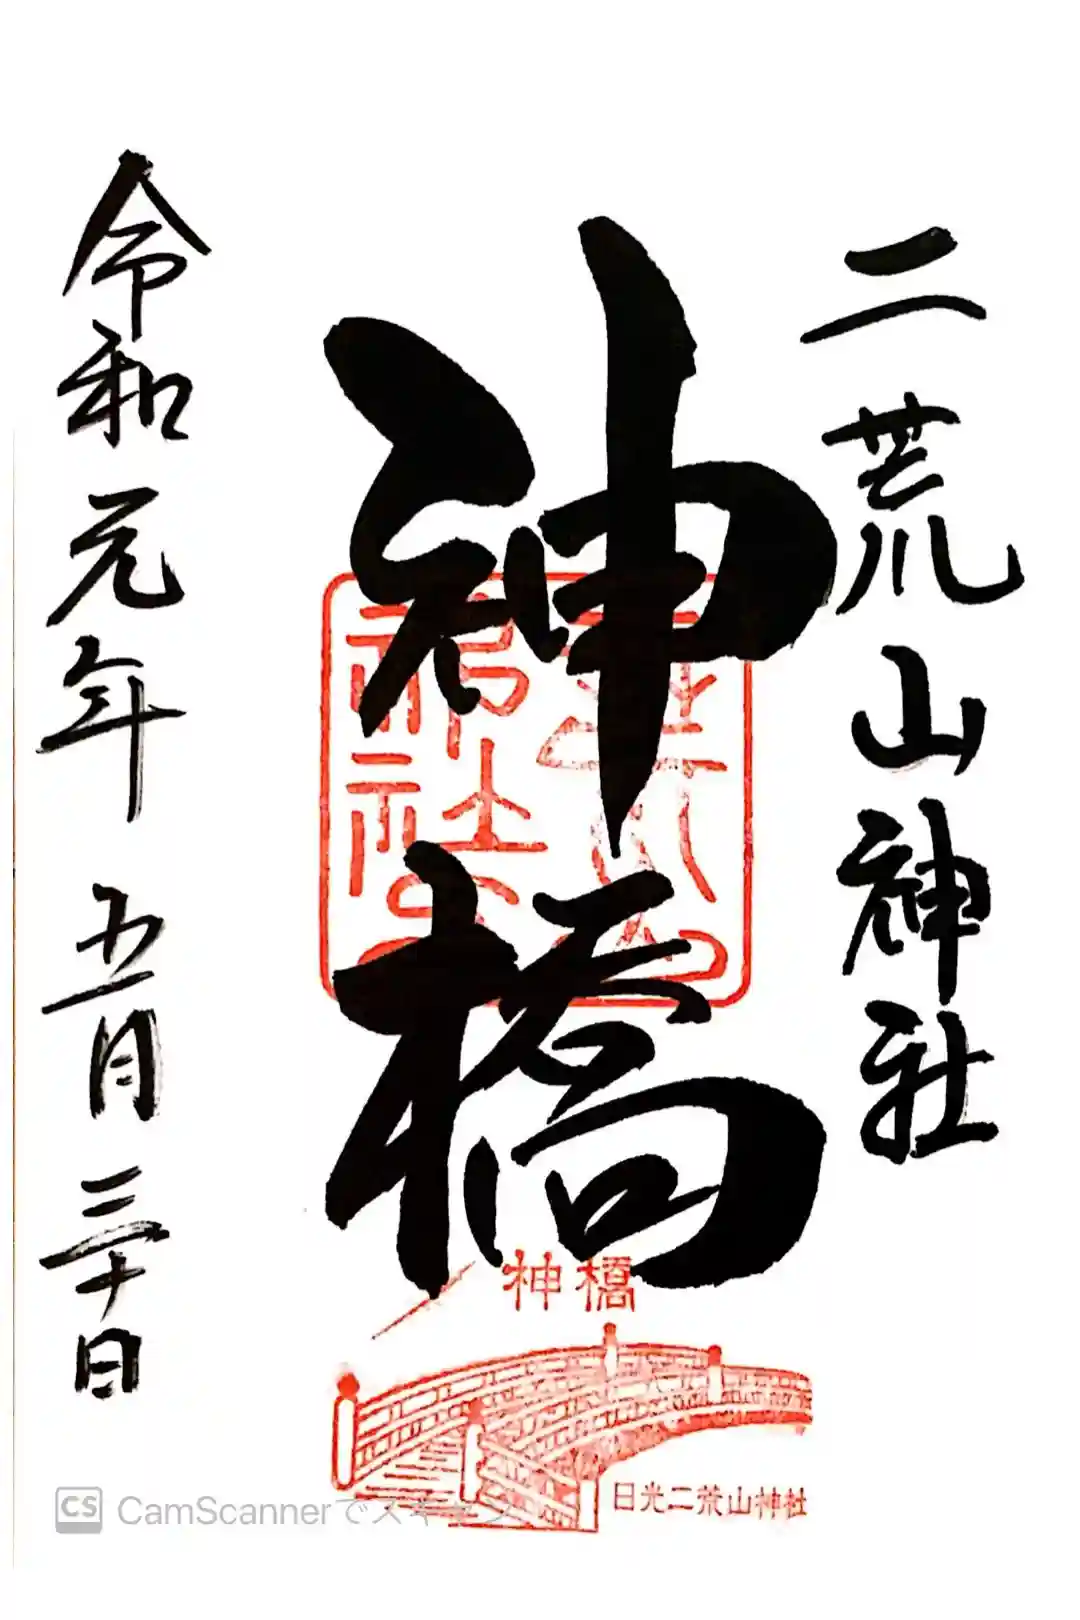 二荒山神社
神橋
令和元年 五月三十日
神橋
日光二荒山神社
CS CamScannerでスキャン